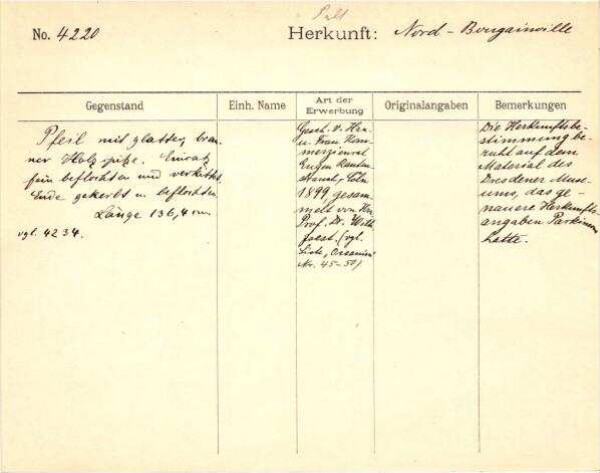 No. 4220
Herkunft: Nord-Bougainville
Gegenstand
Einh. Name
Art der Erwerbung
Originalangaben
Bemerkungen
Pfeil mit glatter, brau-
ner Holzspitze. Einsatz
fein beflochten und verkittet.
Ende gekerbt u. beflochten
Länge 136,4 cm
vgl. 4234.
Gesch. v. Hrn.
u. Frau Kom-
merzienrat
Eugen Rauten-
strauch, Cöln
1899 gesam-
melt von Hrn.
Prof. Dr. Wilh.
Joest. (vgl.
Liste, Ozeanien
Nr. 45-50)
Die Herkunftsbe-
stimmung be-
ruht auf dem
Material des
Dresdener Muse-
ums, das ge-
nauere Herkunfts-
angaben Parkinsons
hatte.